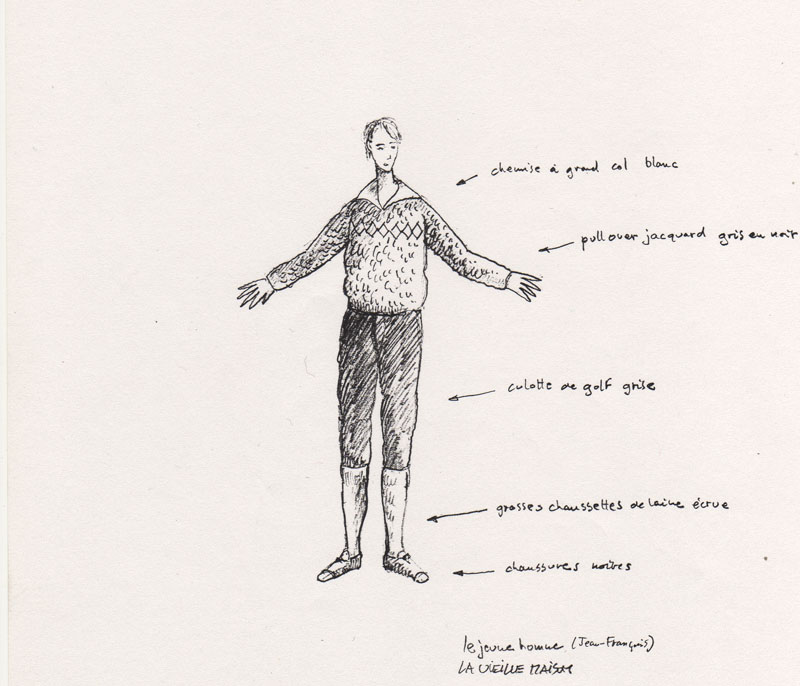 chemise à grand col blanc
pullover jacquard gris en noir
culotte de golf grise
grosses chaussettes de laine écrue
chaussures noires
le jeune homme (Jean-François)
LA VIEILLE MAISON